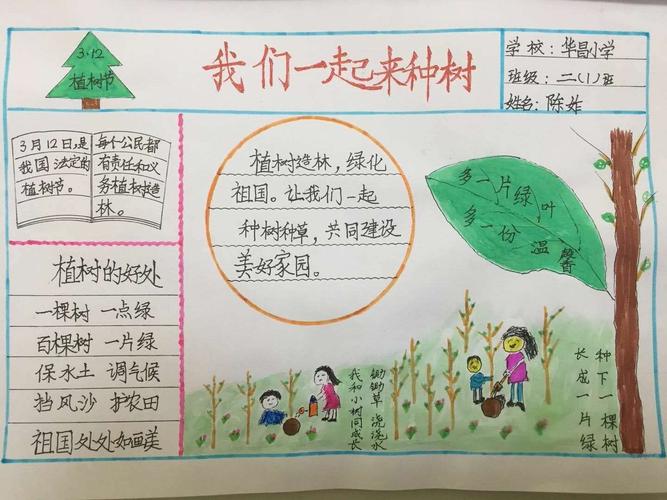 3·12
植树节
我们一起来种树
学校:华昌小学
班级:二(1)班
姓名:陈炸
3月12日,是
我国法定的
植树节。
每个公民都
有责任和义
务植树造
林。
植树造林,绿化
祖国。让我们一起
种树种草,共同建设
美好家园。
多一片绿叶
多一份温馨
植树的好处
一棵树 一点绿
百棵树 一片绿
保水土 调气候
挡风沙 护农田
祖国处处如画美
我和小树同成长
锄锄草 浇浇水
种下一棵树
长成一片绿